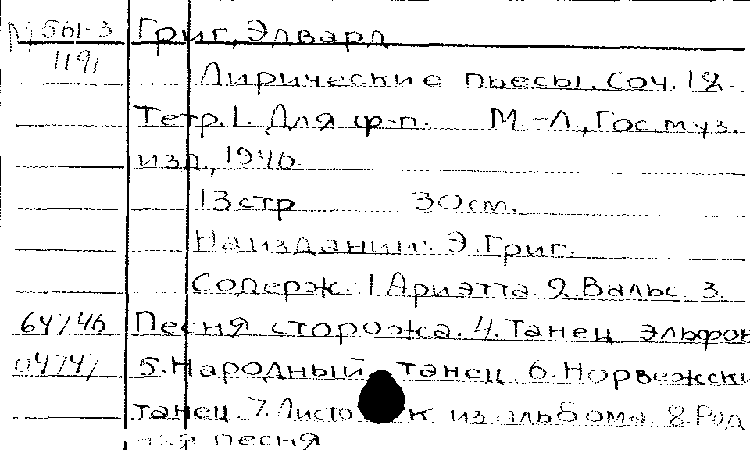 М 561-3 Григ, Эдвард
1191
Лирические пьесы. Соч. 12.
Тетр. 1. Для ф-п. М-Л, Гос. муз.
изд, 1946.
13 стр 30 см.
На издании: Э. Григ.
Содерж. 1 Ариэтта. 2. Вальс. 3.
64746 Песня сторожа. 4. Танец эльфов
5. Народный танец. 6. Норвежский
танец. 7. Листок из альбома. 8. Род
ная песня